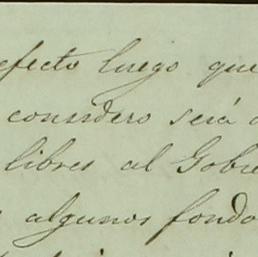 efecto luego que
considero será
libres al Gobie
algunos fondo